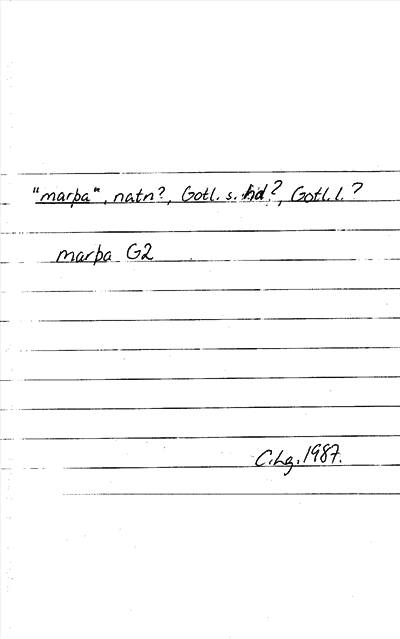 "marþa", natn?, Gotl. s. hd?, Gotl. l.?
marþa G2
C.Lg. 1987.